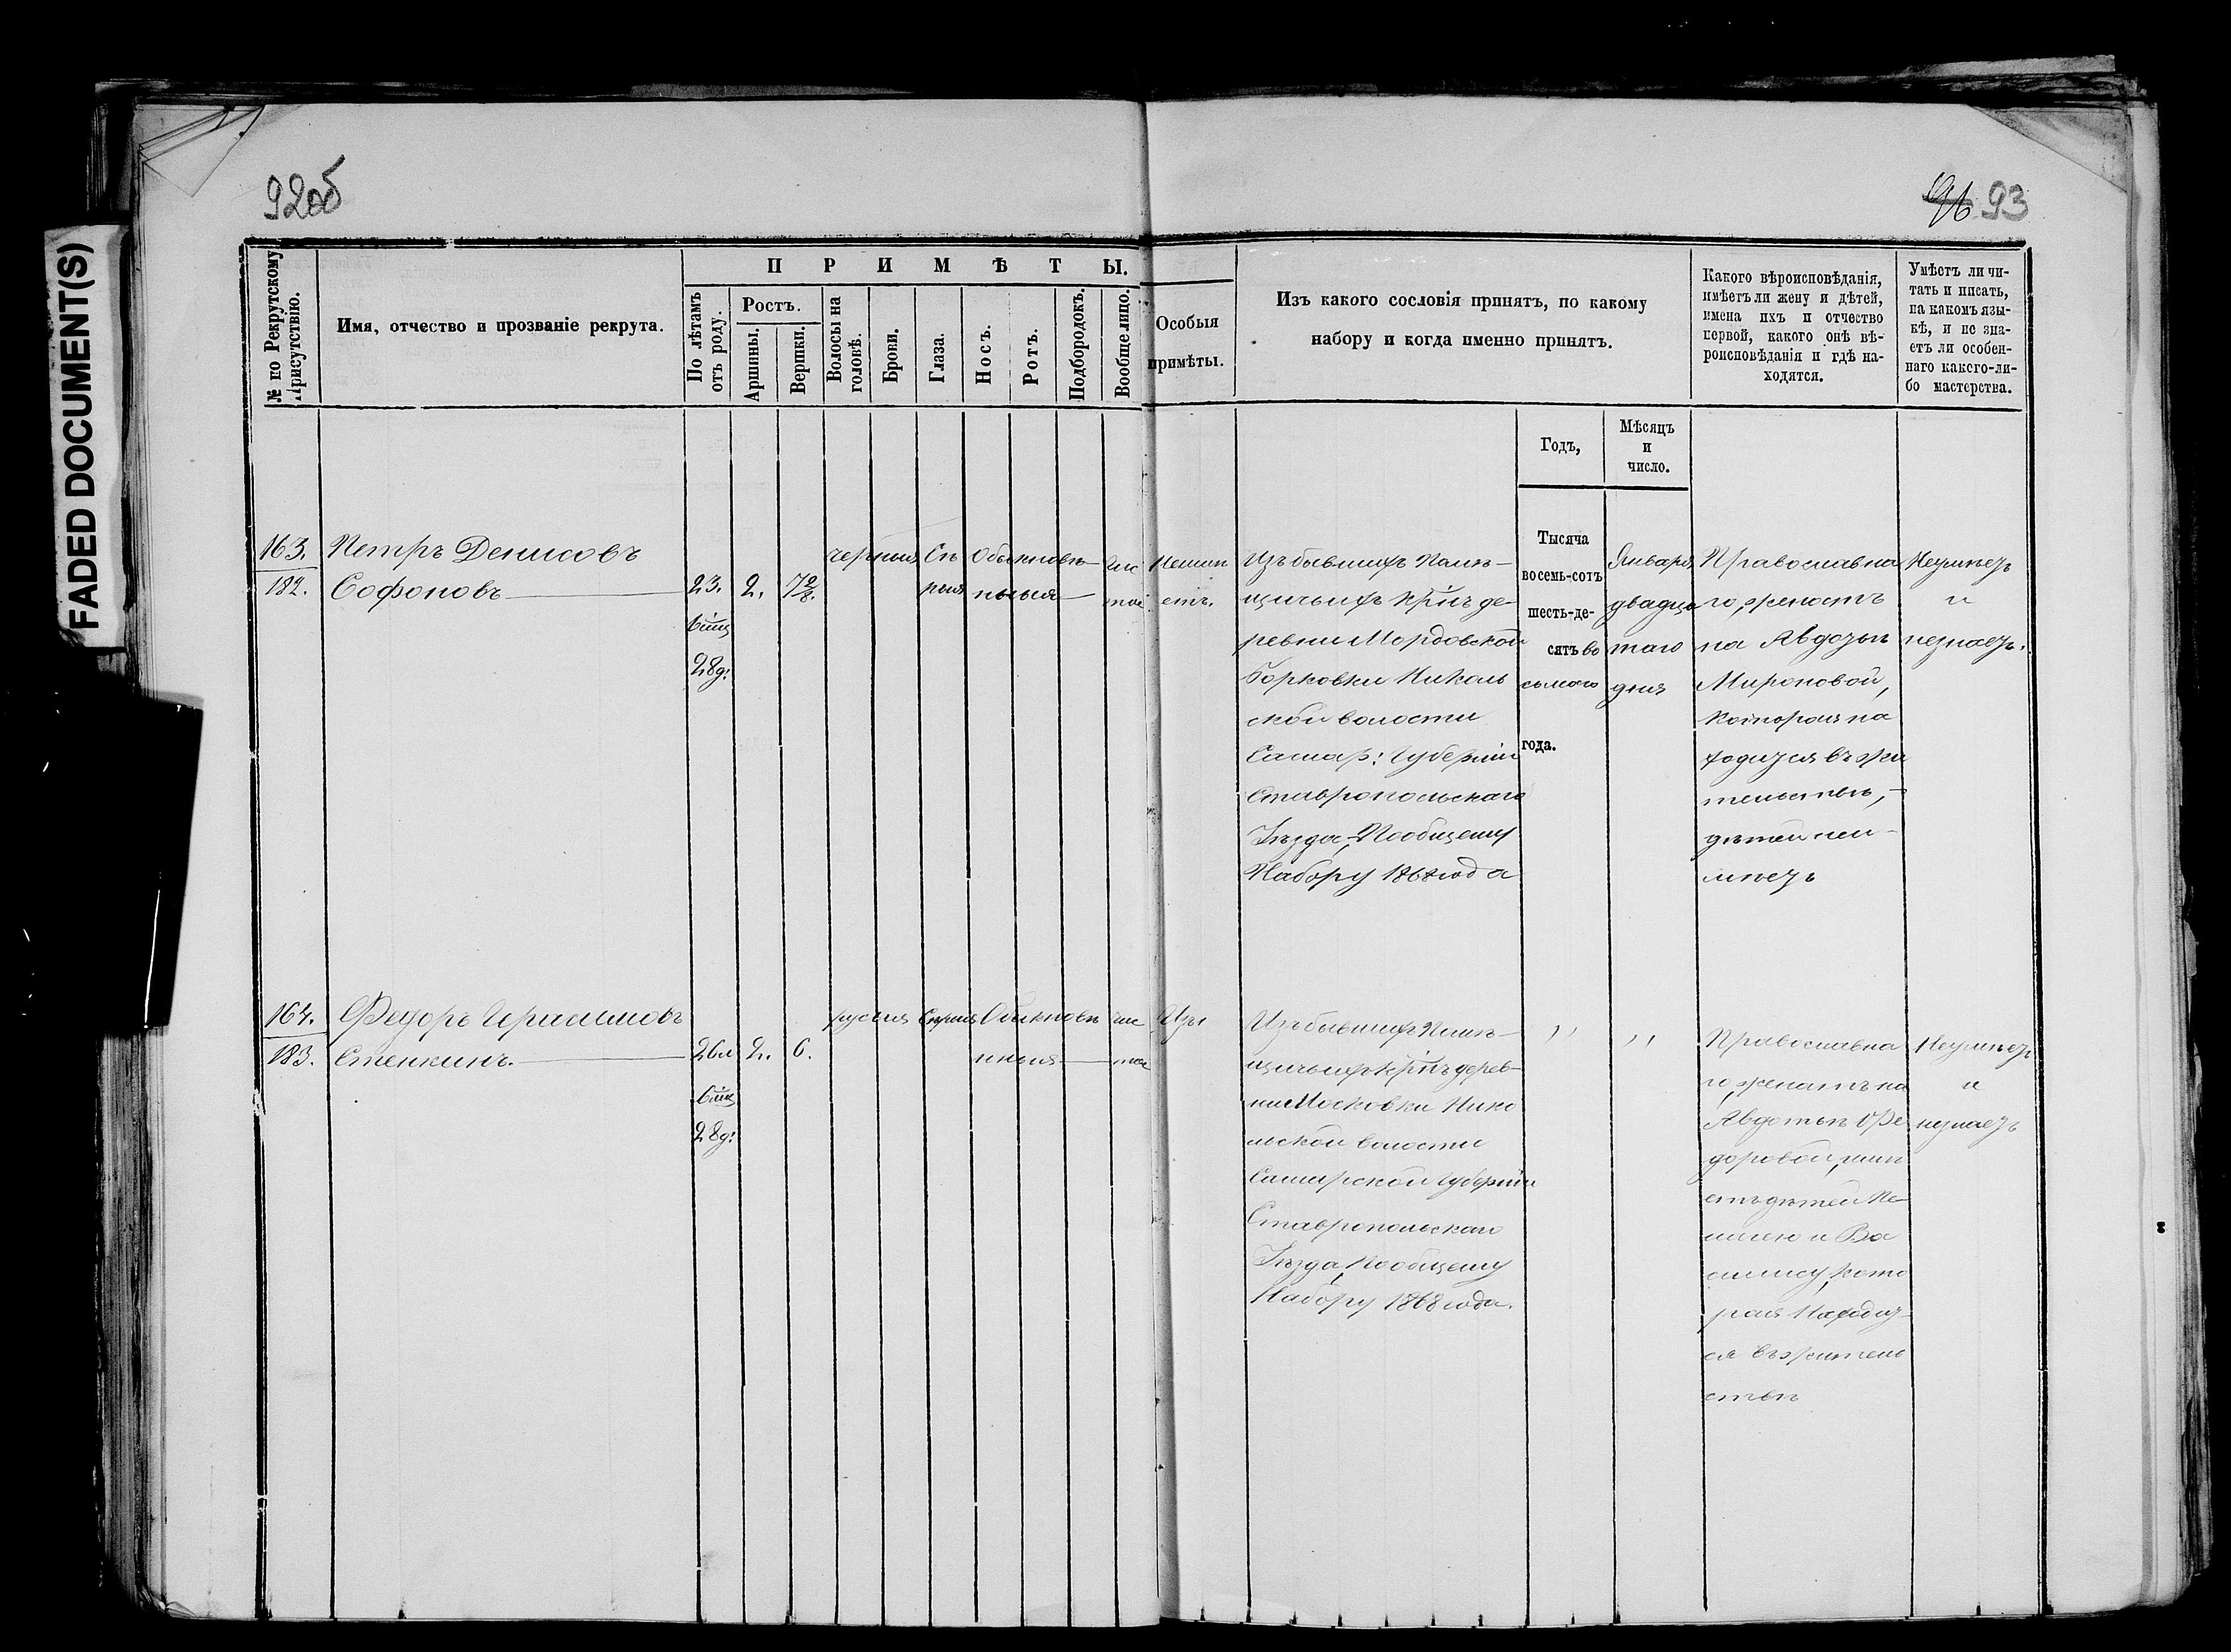 FADED DOCUMENT(S)
92об
96 93
№ по Рекрутскому Присутствію.
Имя, отчество и прозваніе рекрута.
ПРИМѢТЫ.
По лѣтамъ отъ роду.
Ростъ.
Аршины.
Вершки.
Волосы на головѣ.
Брови.
Глаза.
Носъ.
Ротъ.
Подбородокъ.
Вообще лицо.
Особыя
примѣты.
Изъ какого сословія принятъ, по какому
набору и когда именно принятъ.
Какого вѣроисповѣданія,
имѣетъ ли жену и дѣтей,
имена ихъ и отчество
первой, какого онѣ вѣ-
роисповѣданія и гдѣ на-
ходятся.
Умѣетъ ли чи-
тать и писать,
на какомъ язы-
кѣ, и не зна-
етъ ли особен-
наго какого-ли-
бо мастерства.
Годъ,
Мѣсяцъ
и
число.
163.
182.
Петръ Денисовъ
Софоновъ
23.
6 мц
28 д:
2.
7 2/8.
черныя
Сѣ
рыя
Обыкновен
ныя
чис
тое
Неимѣ
етъ.
Изъ бывшихъ Помѣ-
щичьихъ Крнъ де-
ревни Мордовской
Борковки Николь
ской волости
Самар: Губерніи
Ставропольскаго
Уѣзда, Пообщему
Набору 1868 года
Тысяча
восемь-сотъ
шесть-де-
сятъ во
сьмого
года.
Января
двадца
таго
дня
Православна
го, женатъ
на Авдотьѣ
Мироновой,
Которая на
ходится въ жи
тельствѣ,-
дѣтей неи-
мѣетъ
Неумѣетъ
и
незнаетъ.
164.
183.
Федоръ Герасимовъ
Стенкинъ.
26 л
6 мц
28 д:
2.
6.
русыя
Сѣрыя
Обыкновен
ныя
чис
тое
Изъ бывшихъ Помѣ-
щичьихъ Крнъ дерев-
ни Московки Нико
льской волости
Самарской Губерніи
Ставропольскаго
Уѣзда, Пообщему
Набору 1868 года.
,,
,,
Православна
го, женатъ на
Авдотьѣ Фе
доровой, имѣ
етъ дѣтей
и Ва
кото
рая Находит
ся въ житель
ствѣ
Неумѣетъ
и
незнаетъ